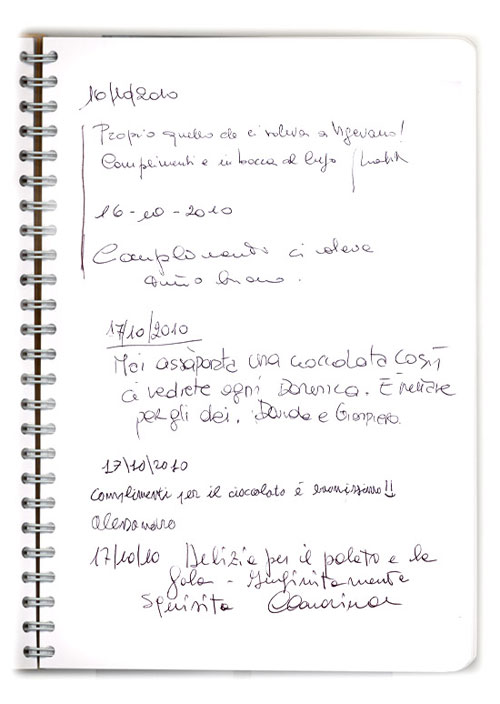 16/10/2010
Propio quello che ci voleva a Vigevano!
Complimenti e in bocca al lupo
16-10-2010
Complimenti ci voleva
buono.
17/10/2010
Mai assaporata una cioccolata così
ci vedrete ogni Domenica. È nettare
per gli dei. Davide e Giampiero.
17/10/2010
Complimenti per il cioccolato é buonissimo!!
Alessandro
17/10/10 Delizia per il palato e la
gola - Infinitamente
Squisita